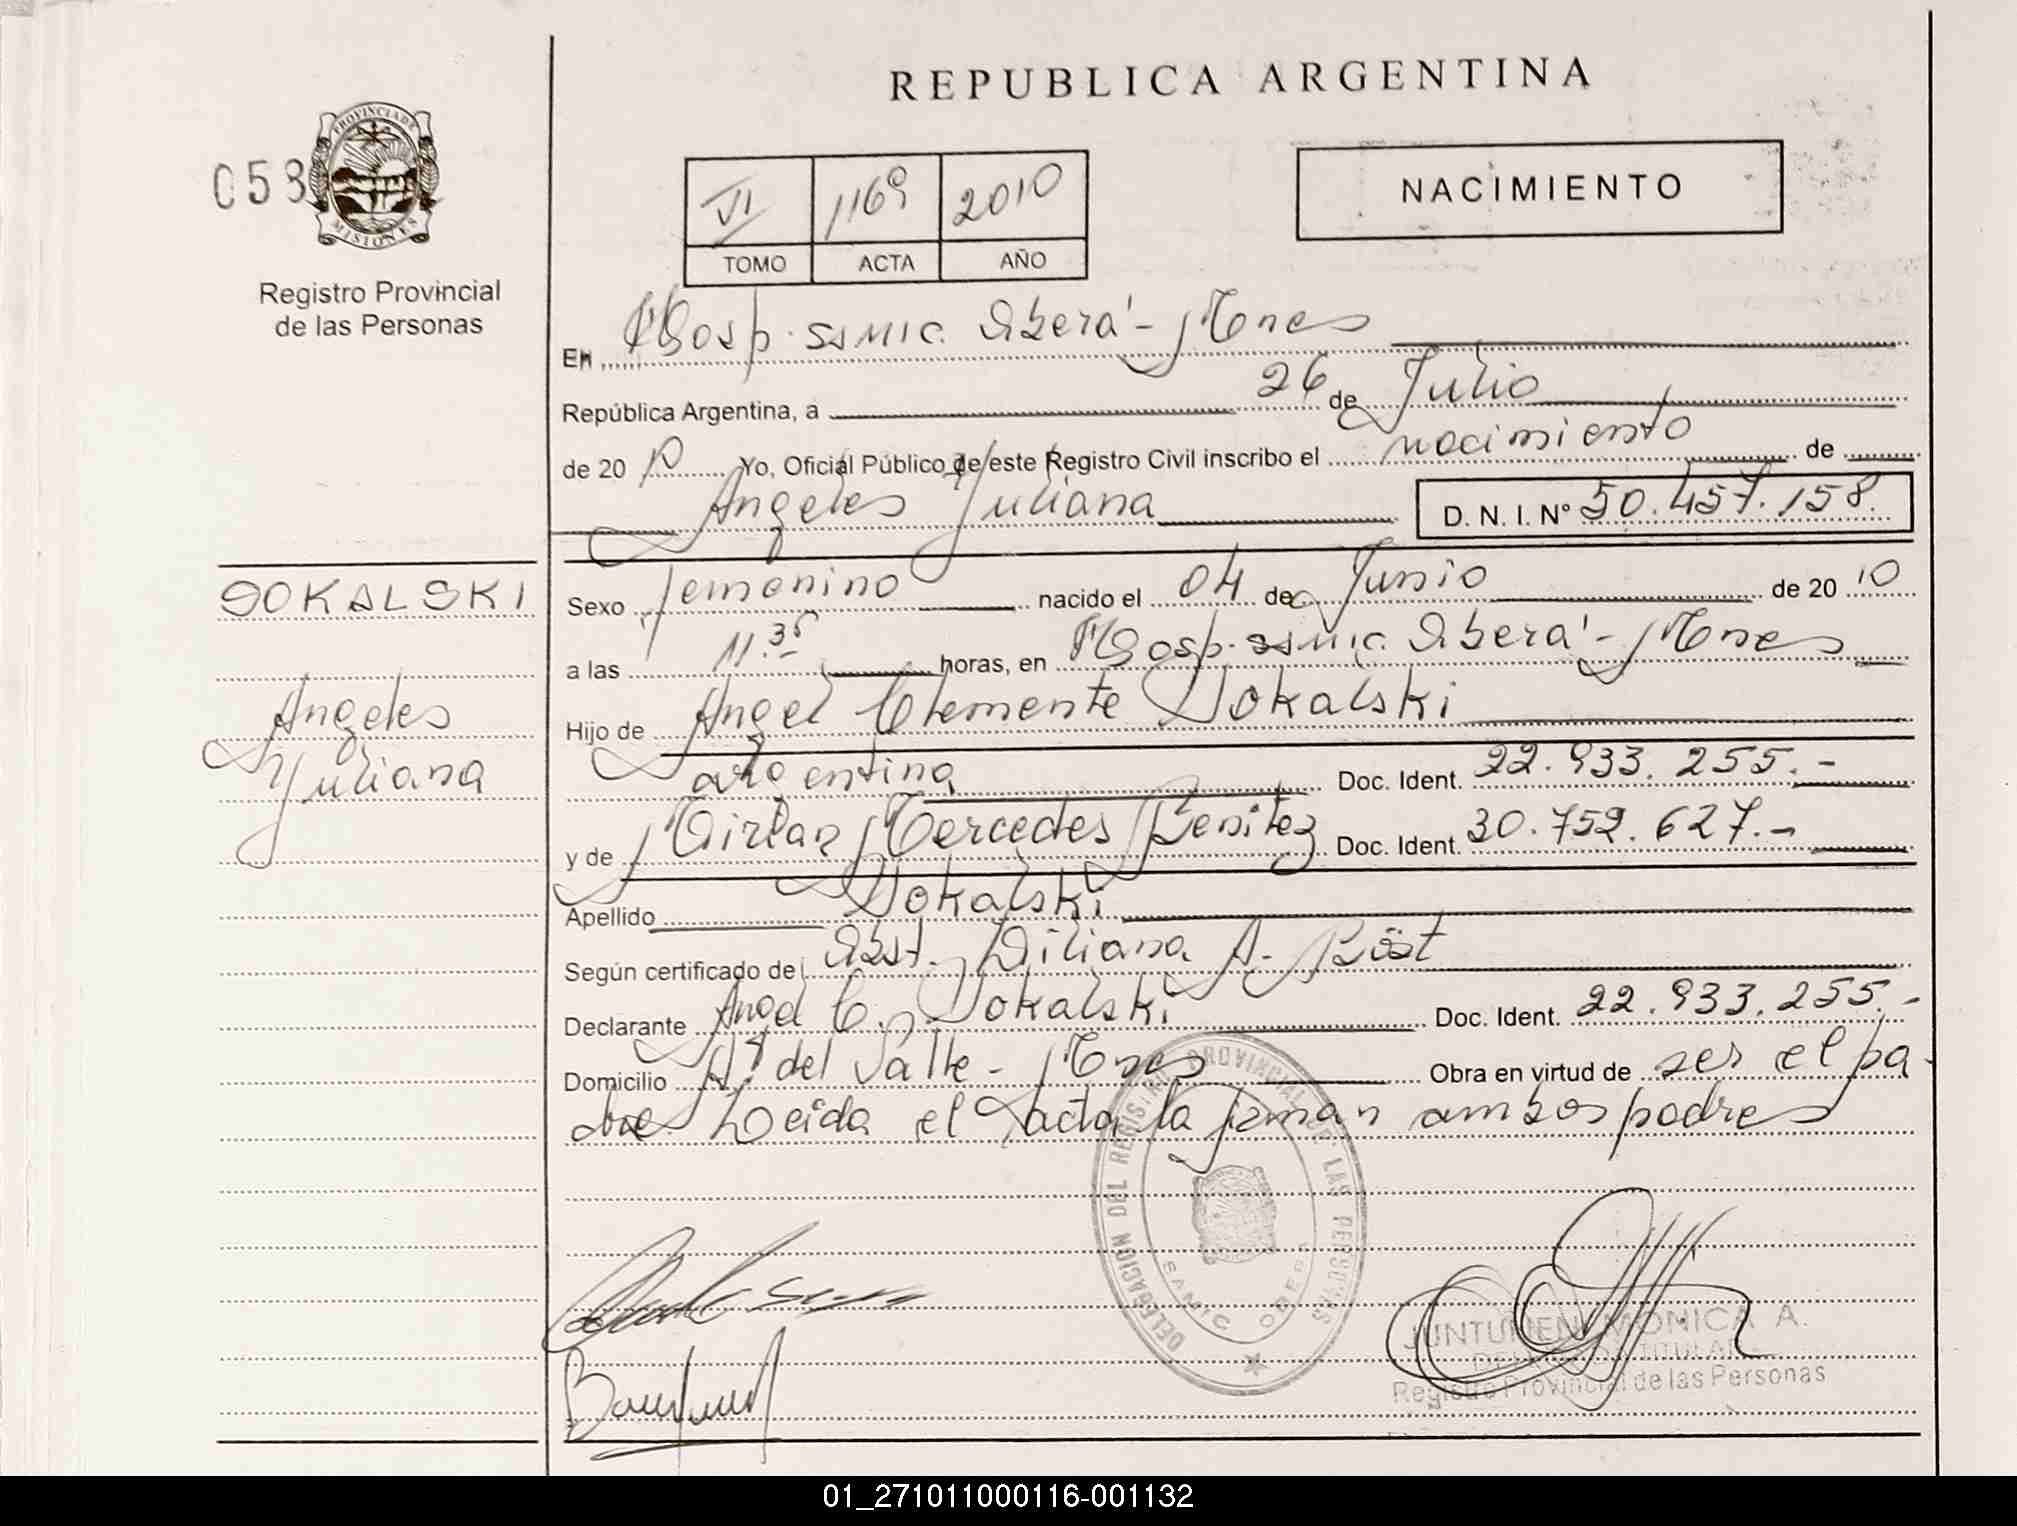 REPUBLICA ARGENTINA
053
PROVINCIA DE
MISIONES
Registro Provincial
de las Personas
VI 1169 2010
TOMO ACTA AÑO
NACIMIENTO
En Hosp. SAMIC. Oberá - Mnes
República Argentina, a 26 de Julio
de 20 10 Yo, Oficial Público de este Registro Civil inscribo el nacimiento de
Angeles Juliana D. N. I. Nº 50.457.158.
SOKALSKI
Angeles
Juliana
Sexo femenino nacido el 04 de Junio de 20 10
a las 11.35 horas, en Hosp. SAMIC. Oberá - Mnes
Hijo de Angel Clemente Sokalski
argentina Doc. Ident. 22.933.255.-
y de Mirian Mercedes Benitez Doc. Ident. 30.752.627.-
Apellido Sokalski
Según certificado de Obst. Liliana A. Böst
Declarante Angel C. Sokalski Doc. Ident. 22.933.255.-
Domicilio Aº del Valle - Mnes Obra en virtud de ser el pa-
dre Leida el acta la firman ambos padres
DELEGACION DEL REGISTRO PROVINCIAL DE LAS PERSONAS
SAMIC OBERA
MONICA A.
DELEGADA TITULAR
Registro Provincial de las Personas
01_271011000116-001132